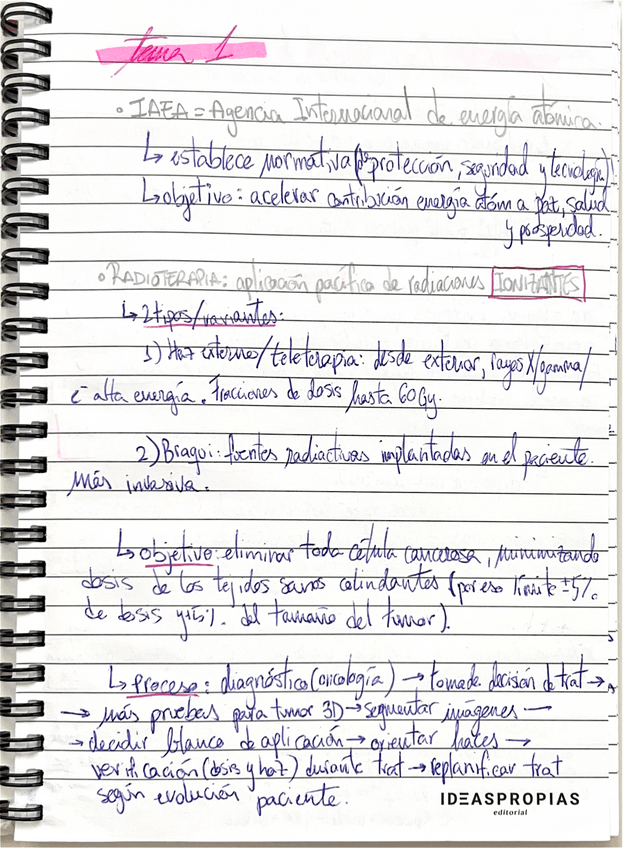 tema 1
• IAEA = Agencia Internacional de energía atómica.
↳ establece normativa (de protección, seguridad y tecnología)!
↳ objetivo: acelerar contribución energía atóm a paz, salud
y prosperidad.
• RADIOTERAPIA: aplicación pacífica de radiaciones IONIZANTES
↳ 2 tipos/variantes:
1) Haz externo/teleterapia: desde exterior, rayos X/gamma/
e⁻ alta energía. Fracciones de dosis hasta 60 Gy.
2) Braqui: fuentes radiactivas implantadas en el paciente.
Más invasiva.
↳ objetivo: eliminar toda célula cancerosa, minimizando
dosis de los tejidos sanos colindantes (por eso límite ±5%
de dosis y ±5% del tamaño del tumor).
↳ proceso: diagnóstico (oncología) → toma de decisión de trat →
→ más pruebas para tumor 3D → segmentar imágenes —
→ decidir blanco de aplicación → orientar haces →
verificación (dosis y haz) durante trat → replanificar trat
según evolución paciente.
IDEASPROPIAS
editorial